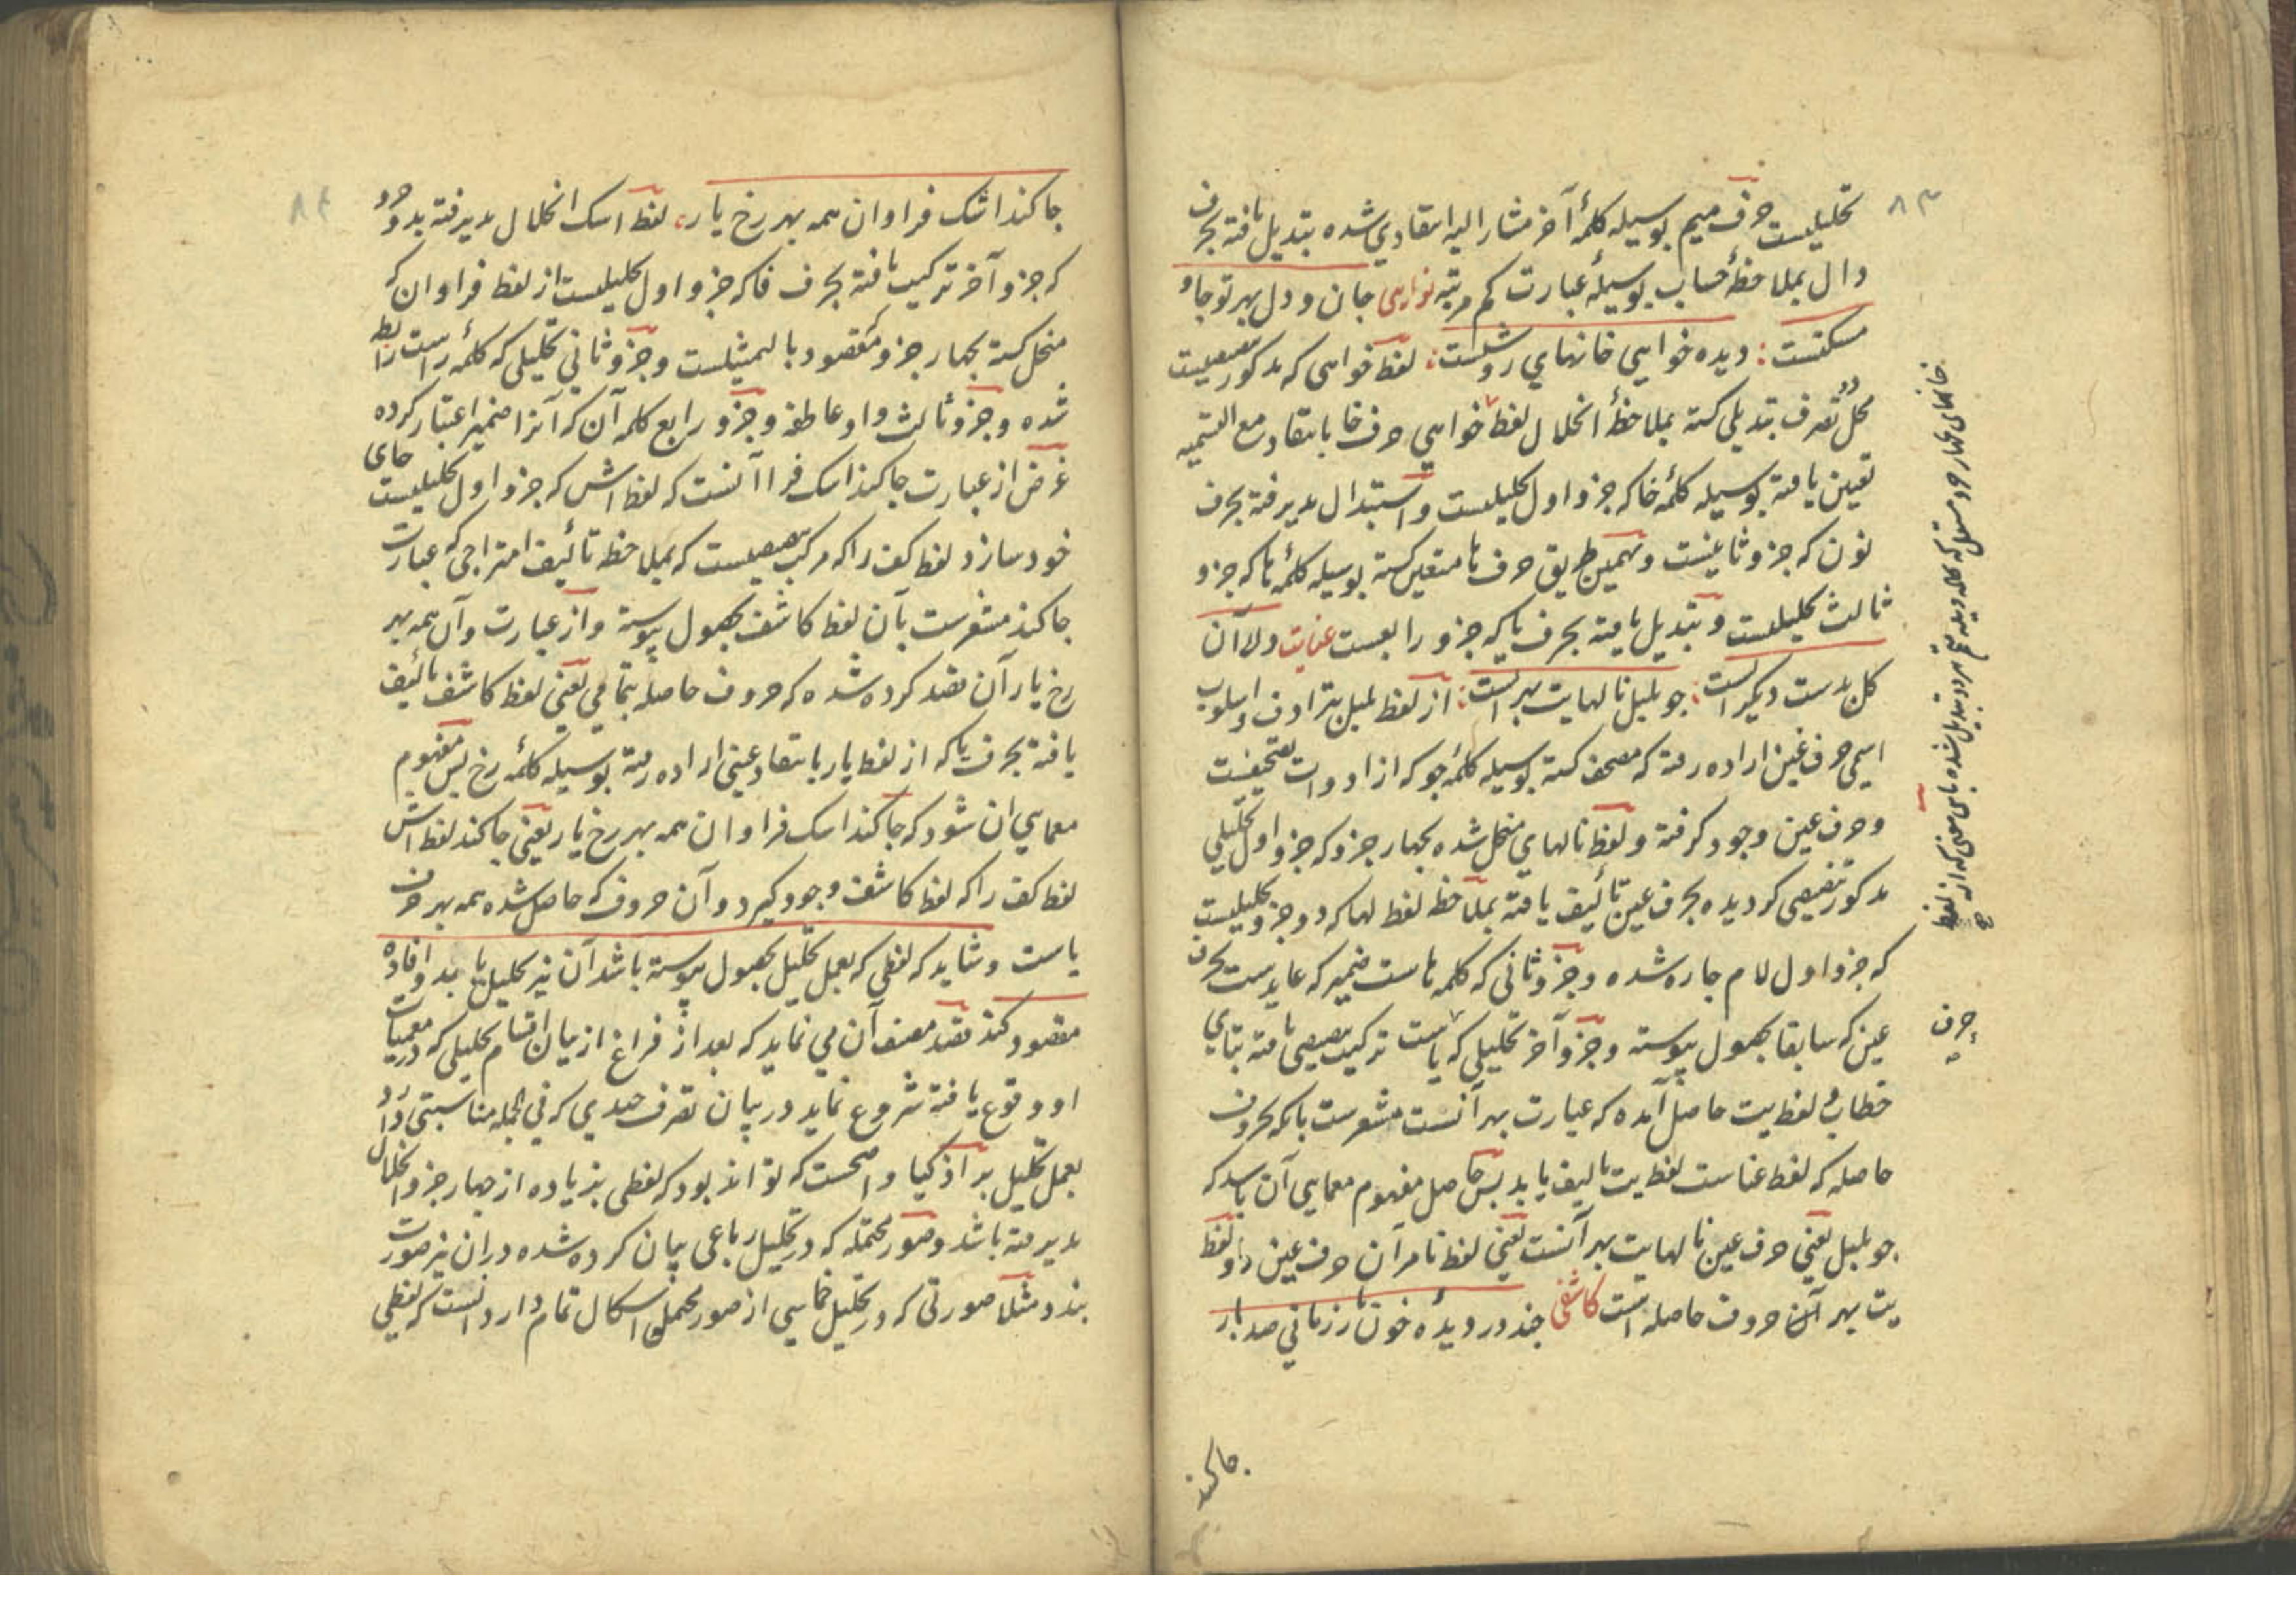 ٨٣
تحلیلیست حرف میم بوسیله کلمهٔ آخر مشار الیه انتقادی شده تبدیل یافته بحرف
دال بملاحظهٔ حساب بوسیلهٔ عبارت کم مرتبه نوایی جان و دل بهر تو جا و
مسکنست : دیده خواهی خانهای روشنست : لفظ خواهی که مذکور تبعیضیست
محل تصرف تبدیلی کشته بملاحظهٔ انحلال لفظ خواهی حرف خا بانتقاد مع التسمیه
تعین یافته بوسیله کلمهٔ خا که جزو اول تحلیلیست و استبدال پذیرفته بحرف
نون که جزو ثانیست و بهمین طریق حرف ها متعین کشته بوسیله کلمهٔ ها که جزو
ثالث تحلیلیست و تبدیل یافته بحرف یا که جزو رابعست عنایت ولا آن
کل بدست دیکر است : جو بلبل نالهایت بهر انست : از لفظ بلبل بترادف و اسلوب
اسمی حرف غین اراده رفته که مصحف کشته بوسیله کلمهٔ جو که از ادوات تصحیفست
و حرف عین وجود کرفته و لفظ نالهای منحل شده بچهار جزو که جزو اول تحلیلی
مذکور تنصیصی کردیده بحرف عین تألیف یافته بملاحظه لفظ لها که دو جزو تحلیلیست
که جزو اول لام جاره شده و جزو ثانی که کلمه هاست ضمیر که عایدست بحرف
عین که سابقا بحصول پیوسته و جزو آخر تحلیلی که یاست ترکیب تبعیضی یافته بتای
خطاب و لفظ یت حاصل آمده که عبارت بهر آنست مشعرست بانکه بحروف
حاصله که لفظ عناست لفظ یت تالیف یابد پس حاصل مفهوم معمایی آن باشد که
جو بلبل یعنی حرف عین نا لها یت بهر آنست یعنی لفظ نا مر آن حرف عین را و لفظ
یت بهر آن حروف حاصله است کاشفی چند در دیدهٔ خون بار زمانی صد بار
جا کند
خانهای چهار جزو
حرف
٨٤
جا کند اشک فراوان همه بهر رخ یار ، لفظ اشک انحلال پذیرفته بدو جزو
که جزو آخر ترکیب یافته بحرف فا که جزو اول تحلیلیست از لفظ فراوان که
منحل کشته بچهار جزو مقصود بالتمثیلست و جزو ثانی تحلیلی که کلمهٔ راست رابط
شده و جزو ثالث واو عاطفه و جزو رابع کلمه آن که آنرا ضمیر اعتبار کرده
غرض از عبارت جا کند اشک فرا آنست که لفظ اش که جزو اول تحلیلیست جای
خود سازد لفظ کف را که مرکب تبعیضیست که بملاحظه تألیف امتزاجی که عبارت
جا کند مشعرست بآن لفظ کاشف بحصول پیوسته و از عبارت و آن همه بهر
رخ یار آن قصد کرده شده که حروف حاصله بتمامی یعنی لفظ کاشف تألیف
یافته بحرف یا که از لفظ یار بانتقاد عینی اراده رفته بوسیله کلمهٔ رخ پس مفهوم
معمایی ان شود که جا کند اشک فراوان همه بهر رخ یار یعنی جا کند لفظ اش
لفظ کف را که لفظ کاشف وجود کیرد و آن حروف که حاصل شده همه بهر حرف
یاست و شاید که لفظی که بعمل تحلیل بحصول پیوسته باشد آن نیز تحلیل یابد و افاده
مقصود کند قصد مصنف آن می نماید که بعد از فراغ از بیان اقسام تحلیلی که در معمیات
او وقوع یافته شروع نماید در بیان تصرف جدی که فی الجمله مناسبتی دارد
بعمل تحلیل بر اذکیا واضحست که تواند بود که لفظی بزیاده از چهار جزو انحلال
پذیرفته باشد و صور محتمله که در تحلیل رباعی بیان کرده شده دران نیز صورت
بندد مثلا صورتی که در تحلیل خماسی از صور محتمله اشکال تمام دارد آنست که لفظی